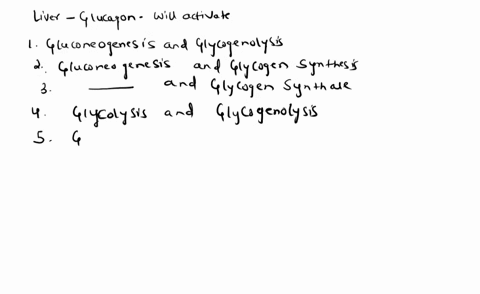 Liver - Glucagon. Will activate
1. Gluconeogenesis and Glycogenolysis
2. Gluconeogenesis and Glycogen Synthesis
3. ____ and Glycogen Synthase
4. Glycolysis and Glycogenolysis
5. G